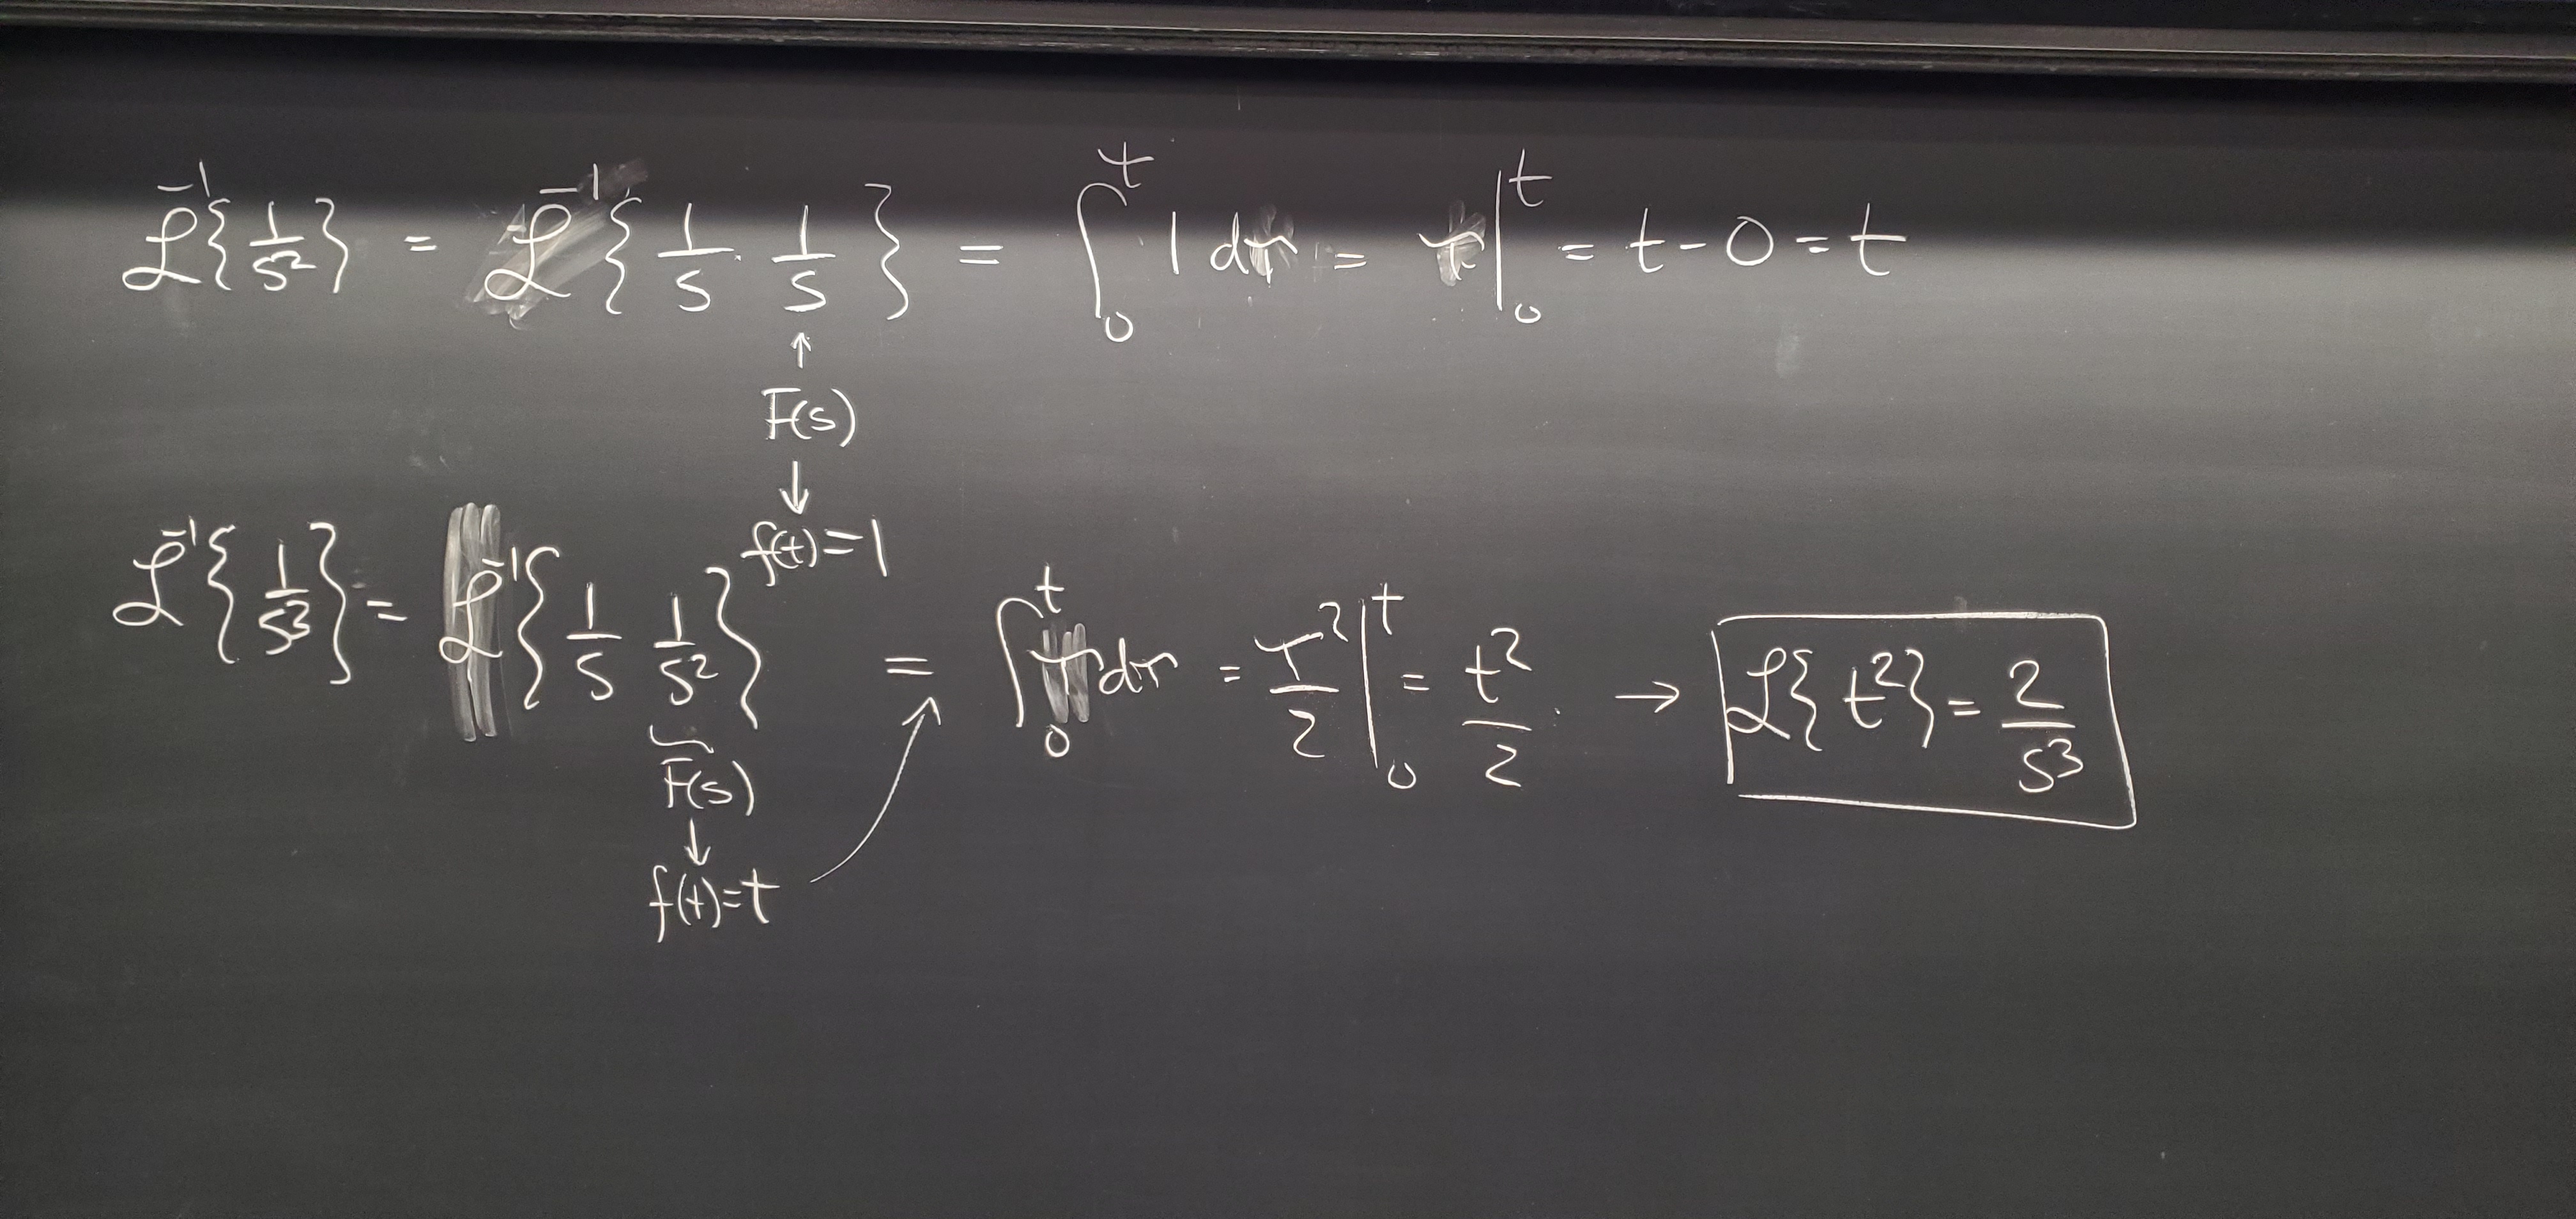 ℒ⁻¹{1/s²} = ℒ⁻¹{1/s · 1/s} = ∫₀ᵗ 1 dτ = τ|₀ᵗ = t - 0 = t
↑
F(s)
↓
f(t)=1
ℒ⁻¹{1/s³} = ℒ⁻¹{1/s 1/s²} = ∫₀ᵗ τ dτ = τ²/2|₀ᵗ = t²/2 → ℒ{t²} = 2/s³
F(s)
↓
f(t)=t